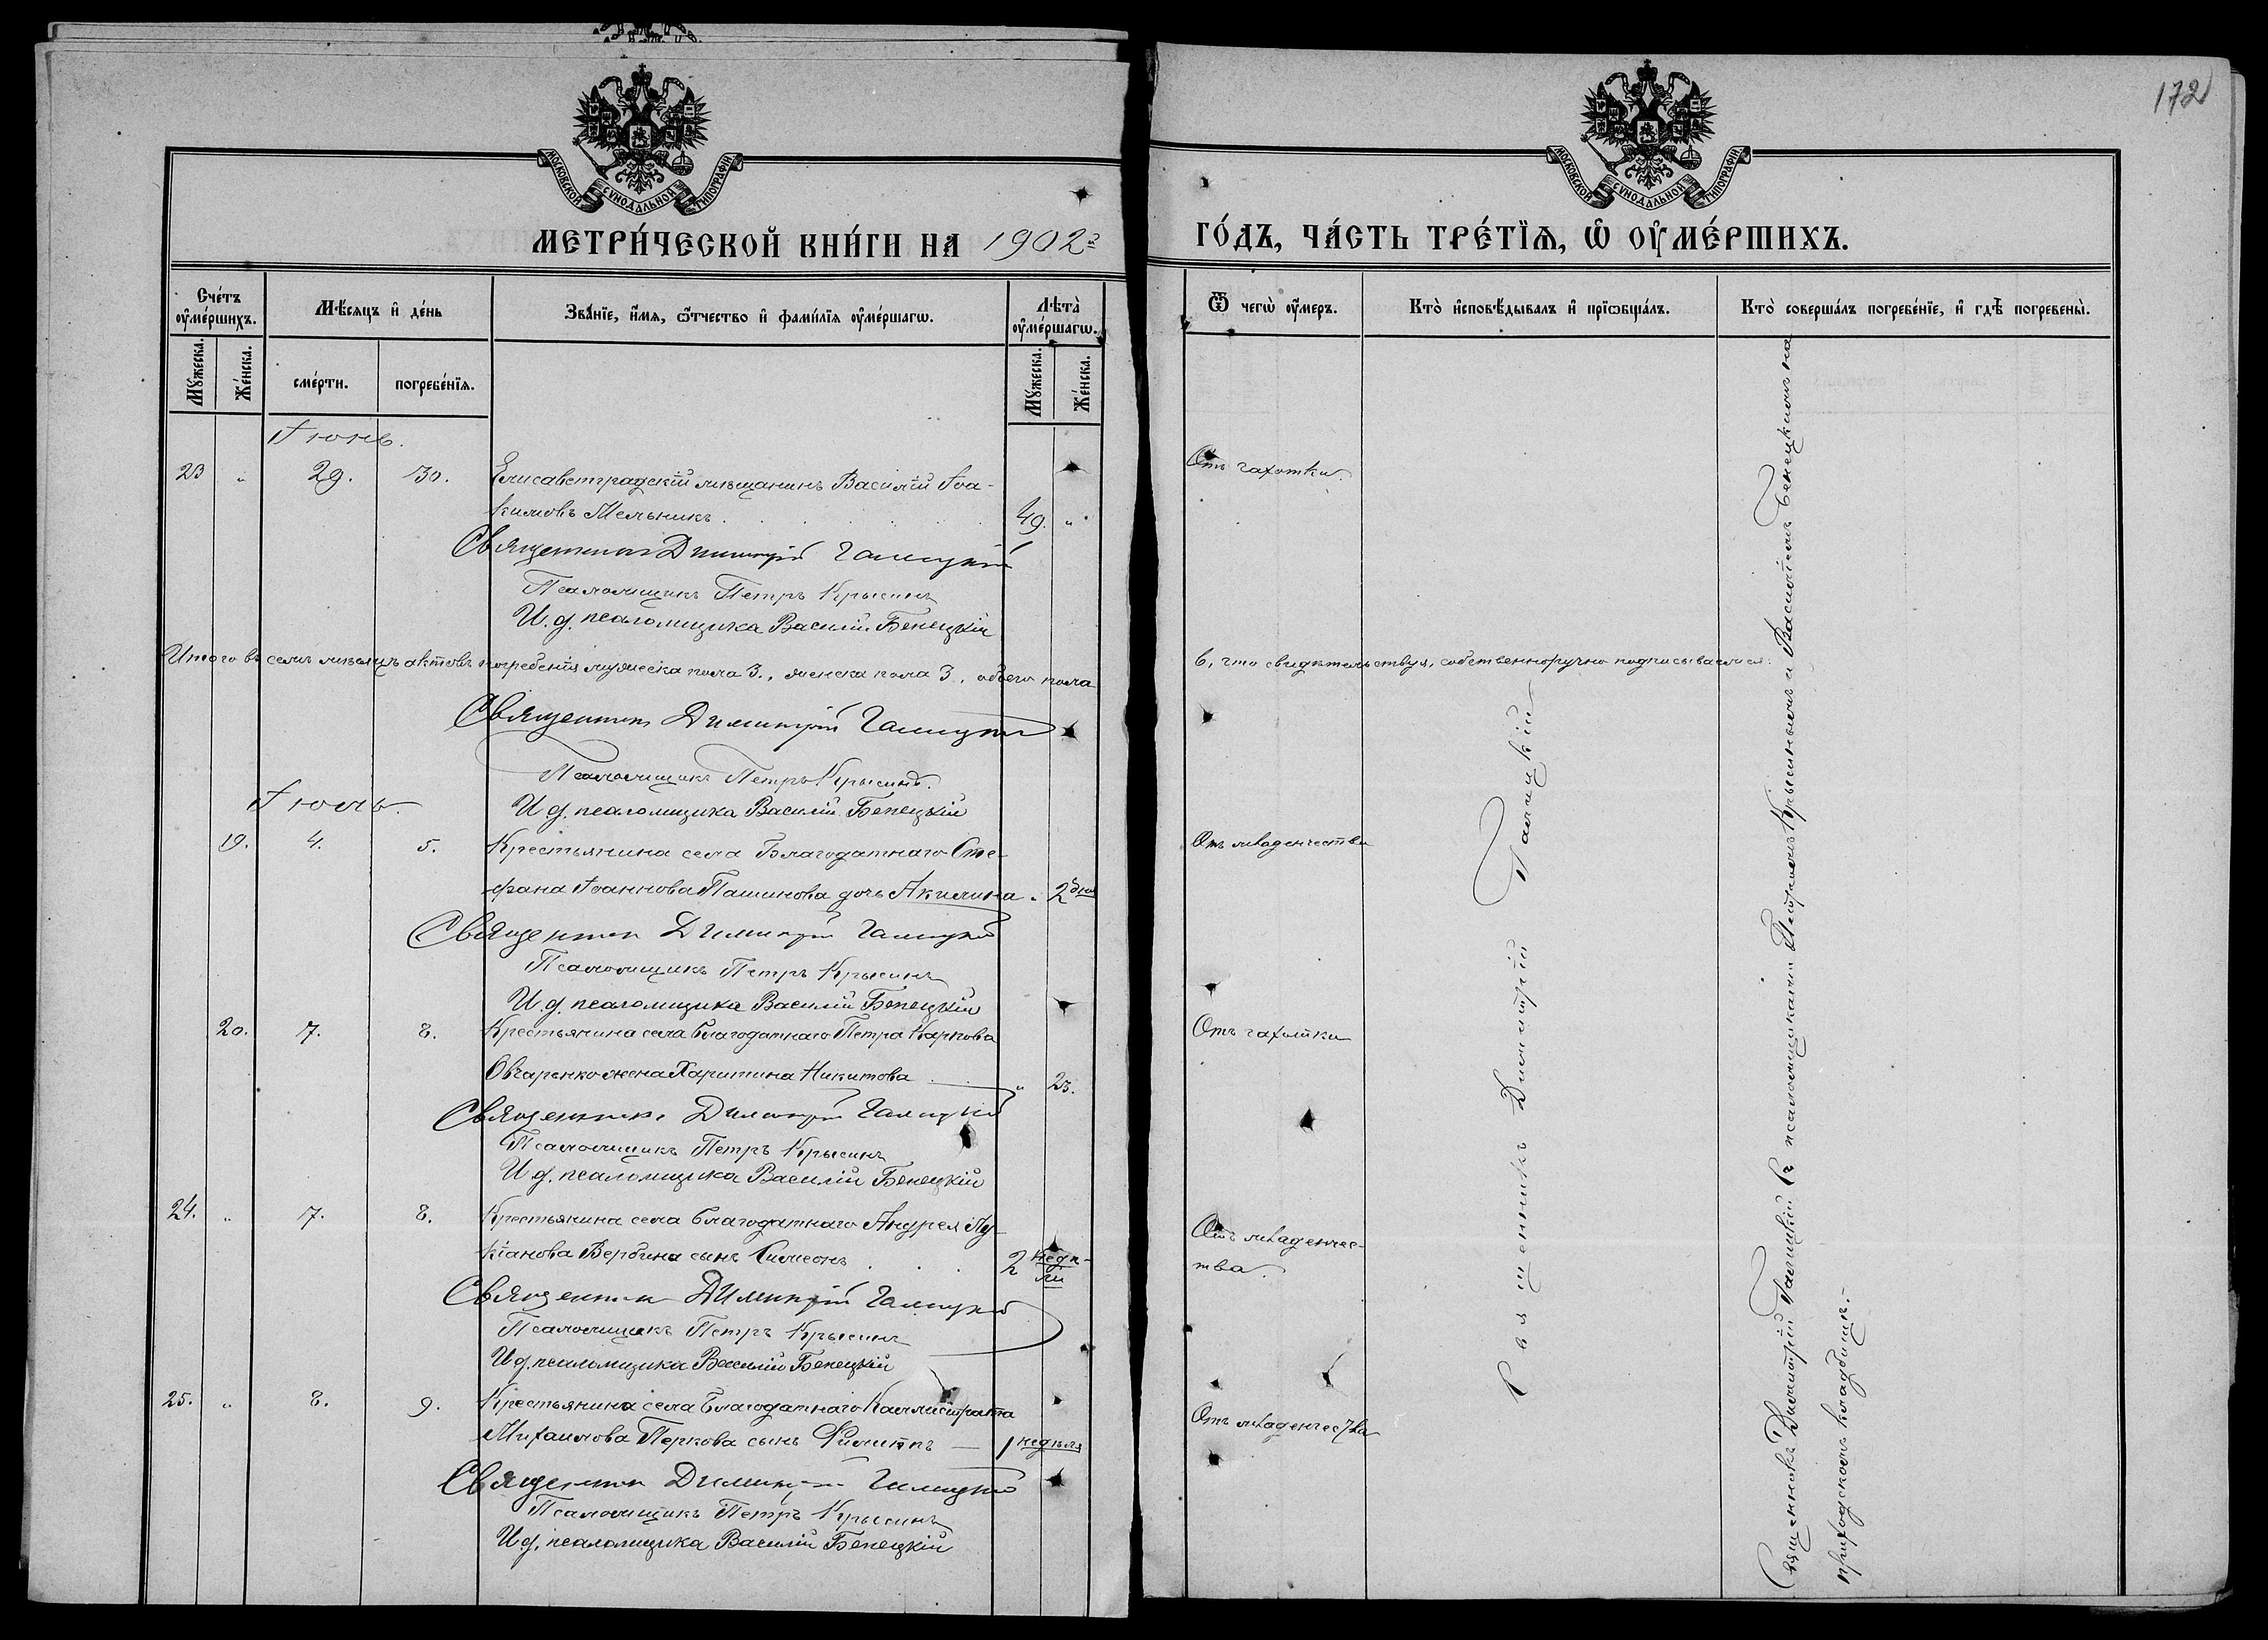 172
МОСКОВСКОЙ СѴНОДАЛЬНОЙ ТИПОГРАФІИ
МОСКОВСКОЙ СѴНОДАЛЬНОЙ ТИПОГРАФІИ
МЕТРИ́ЧЕСКОЙ КНИ́ГИ НА 1902 г
ГО́ДЪ, ЧА́СТЬ ТРЕ́ТЇѦ, Ѡ҆ ОУ҆МЕ́РШИХЪ.
Сче́тъ оу҆ме́ршихъ.
Мꙋ́жеска.
Же́нска.
Мѣ́сяцъ и҆ де́нь
сме́рти.
погребе́нїѧ.
Зва́нїе, и҆́мѧ, ѻ҆́тчество и҆ фами́лїѧ оу҆ме́ршагѡ.
Лѣ̑та̀ оу҆ме́ршагѡ.
Мꙋ́жеска.
Же́нска.
Ѿ чегѡ̀ оу҆́меръ.
Кто̀ и҆сповѣ́дывалъ и҆ прїѡбща́лъ.
Кто̀ соверша́лъ погребе́нїе, и҆ гдѣ̀ погребены̀.
Іюнь.
23 „ 29. 30. Елисаветградскій мѣщанинъ Василій Іоа-
кимовъ Мельникъ . 49. „ Отъ чахотки.
Священникъ Димитрій Галицкій
Псаломщикъ Петръ Крысинъ
И. д. псаломщика Василій Бенецкій
Итого въ семъ мѣсяцѣ актовъ погребенія мужеска пола 3., женска пола 3., обоего пола 6, что свидѣтельствуя, собственноручно подписываемся:
Священникъ Димитрій Галицкій
Псаломщикъ Петръ Крысинъ.
И. д. псаломщика Василій Бенецкій
Іюль.
19. 4. 5. Крестьянина села Благодатнаго Сте-
фана Іоаннова Пашинова дочь Акилина „ 2 дня Отъ младенчества
Священникъ Димитрій Галицкій
Псаломщикъ Петръ Крысинъ
И. д. псаломщика Василій Бенецкій
20. 7. 8. Крестьянина села Благодатнаго Петра Карпова
Овчаренко жена Харитина Никитова „ 23. Отъ чахотки
Священникъ Димитрій Галицкій
Псаломщикъ Петръ Крысинъ
И. д. псаломщика Василій Бенецкій
24. „ 7. 8. Крестьянина села Благодатнаго Андрея Лу-
кіанова Вербина сынъ Симеонъ . 2 недѣ-
ли Отъ младенчес-
тва.
Священникъ Димитрій Галицкій
Псаломщикъ Петръ Крысинъ
И. д. псаломщика Василій Бенецкій
25. „ 8. 9. Крестьянина села Благодатнаго Каллистрата
Михаилова Перкова сынъ Филиппъ — 1 недѣля Отъ младенчества
Священникъ Димитрій Галицкій
Псаломщикъ Петръ Крысинъ
И. д. псаломщика Василій Бенецкій
Священникъ Димитрій Галицкій
Священникъ Димитрій Галицкій съ псаломщиками Петромъ Крысинымъ и Василіемъ Бенецкимъ на
приходскомъ кладбищѣ.-